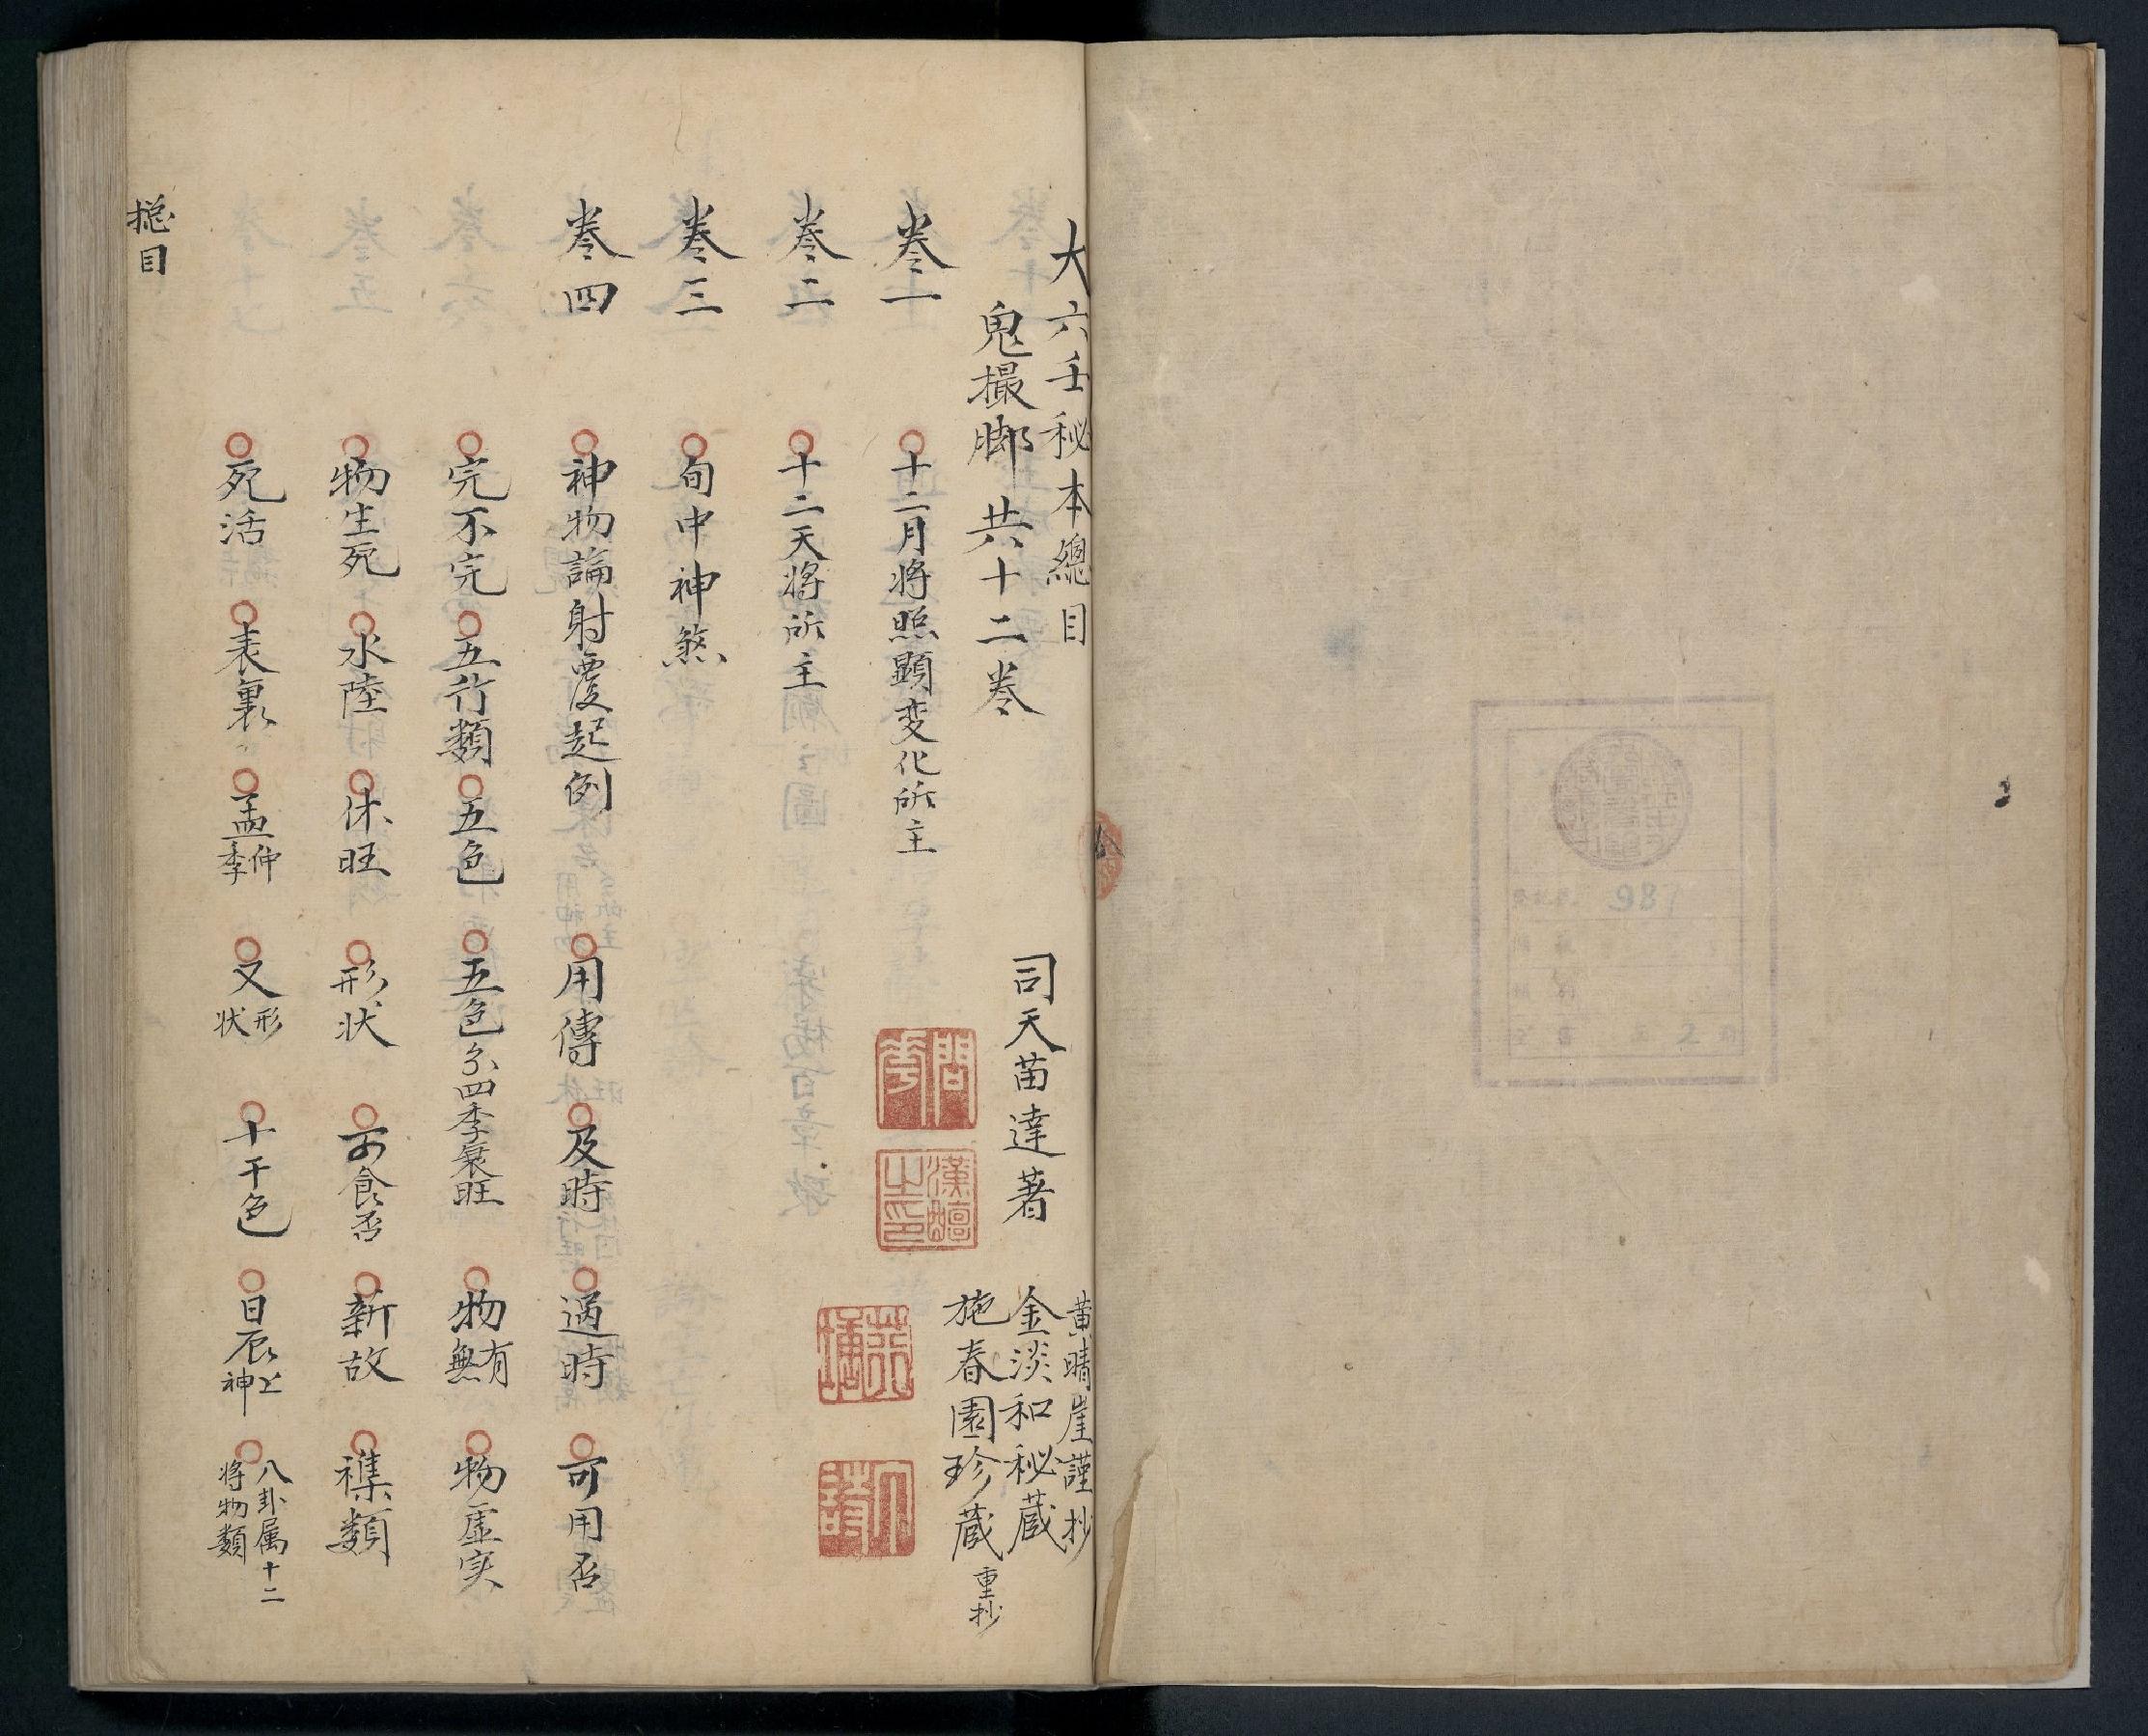 大六壬秘本總目
鬼撮脚 共十二卷
司天苗達著
黄晴崖謹抄
金淡和秘蔵
施春園珍蔵 重抄
卷一 十二月将照顕変化所主
卷二 十二天将所主
卷三 旬中神煞
卷四 神物論射覆起例 用傳 及時 過時 可用否
完不完 五行類 五色 五色分四季衰旺 物有無 物虚实
物生死 水陸 休旺 形状 可食否 新故 襍類
死活 表裏 孟仲季 又形状 十干色 日辰上神 八卦属十二将物類
摠目
987
2